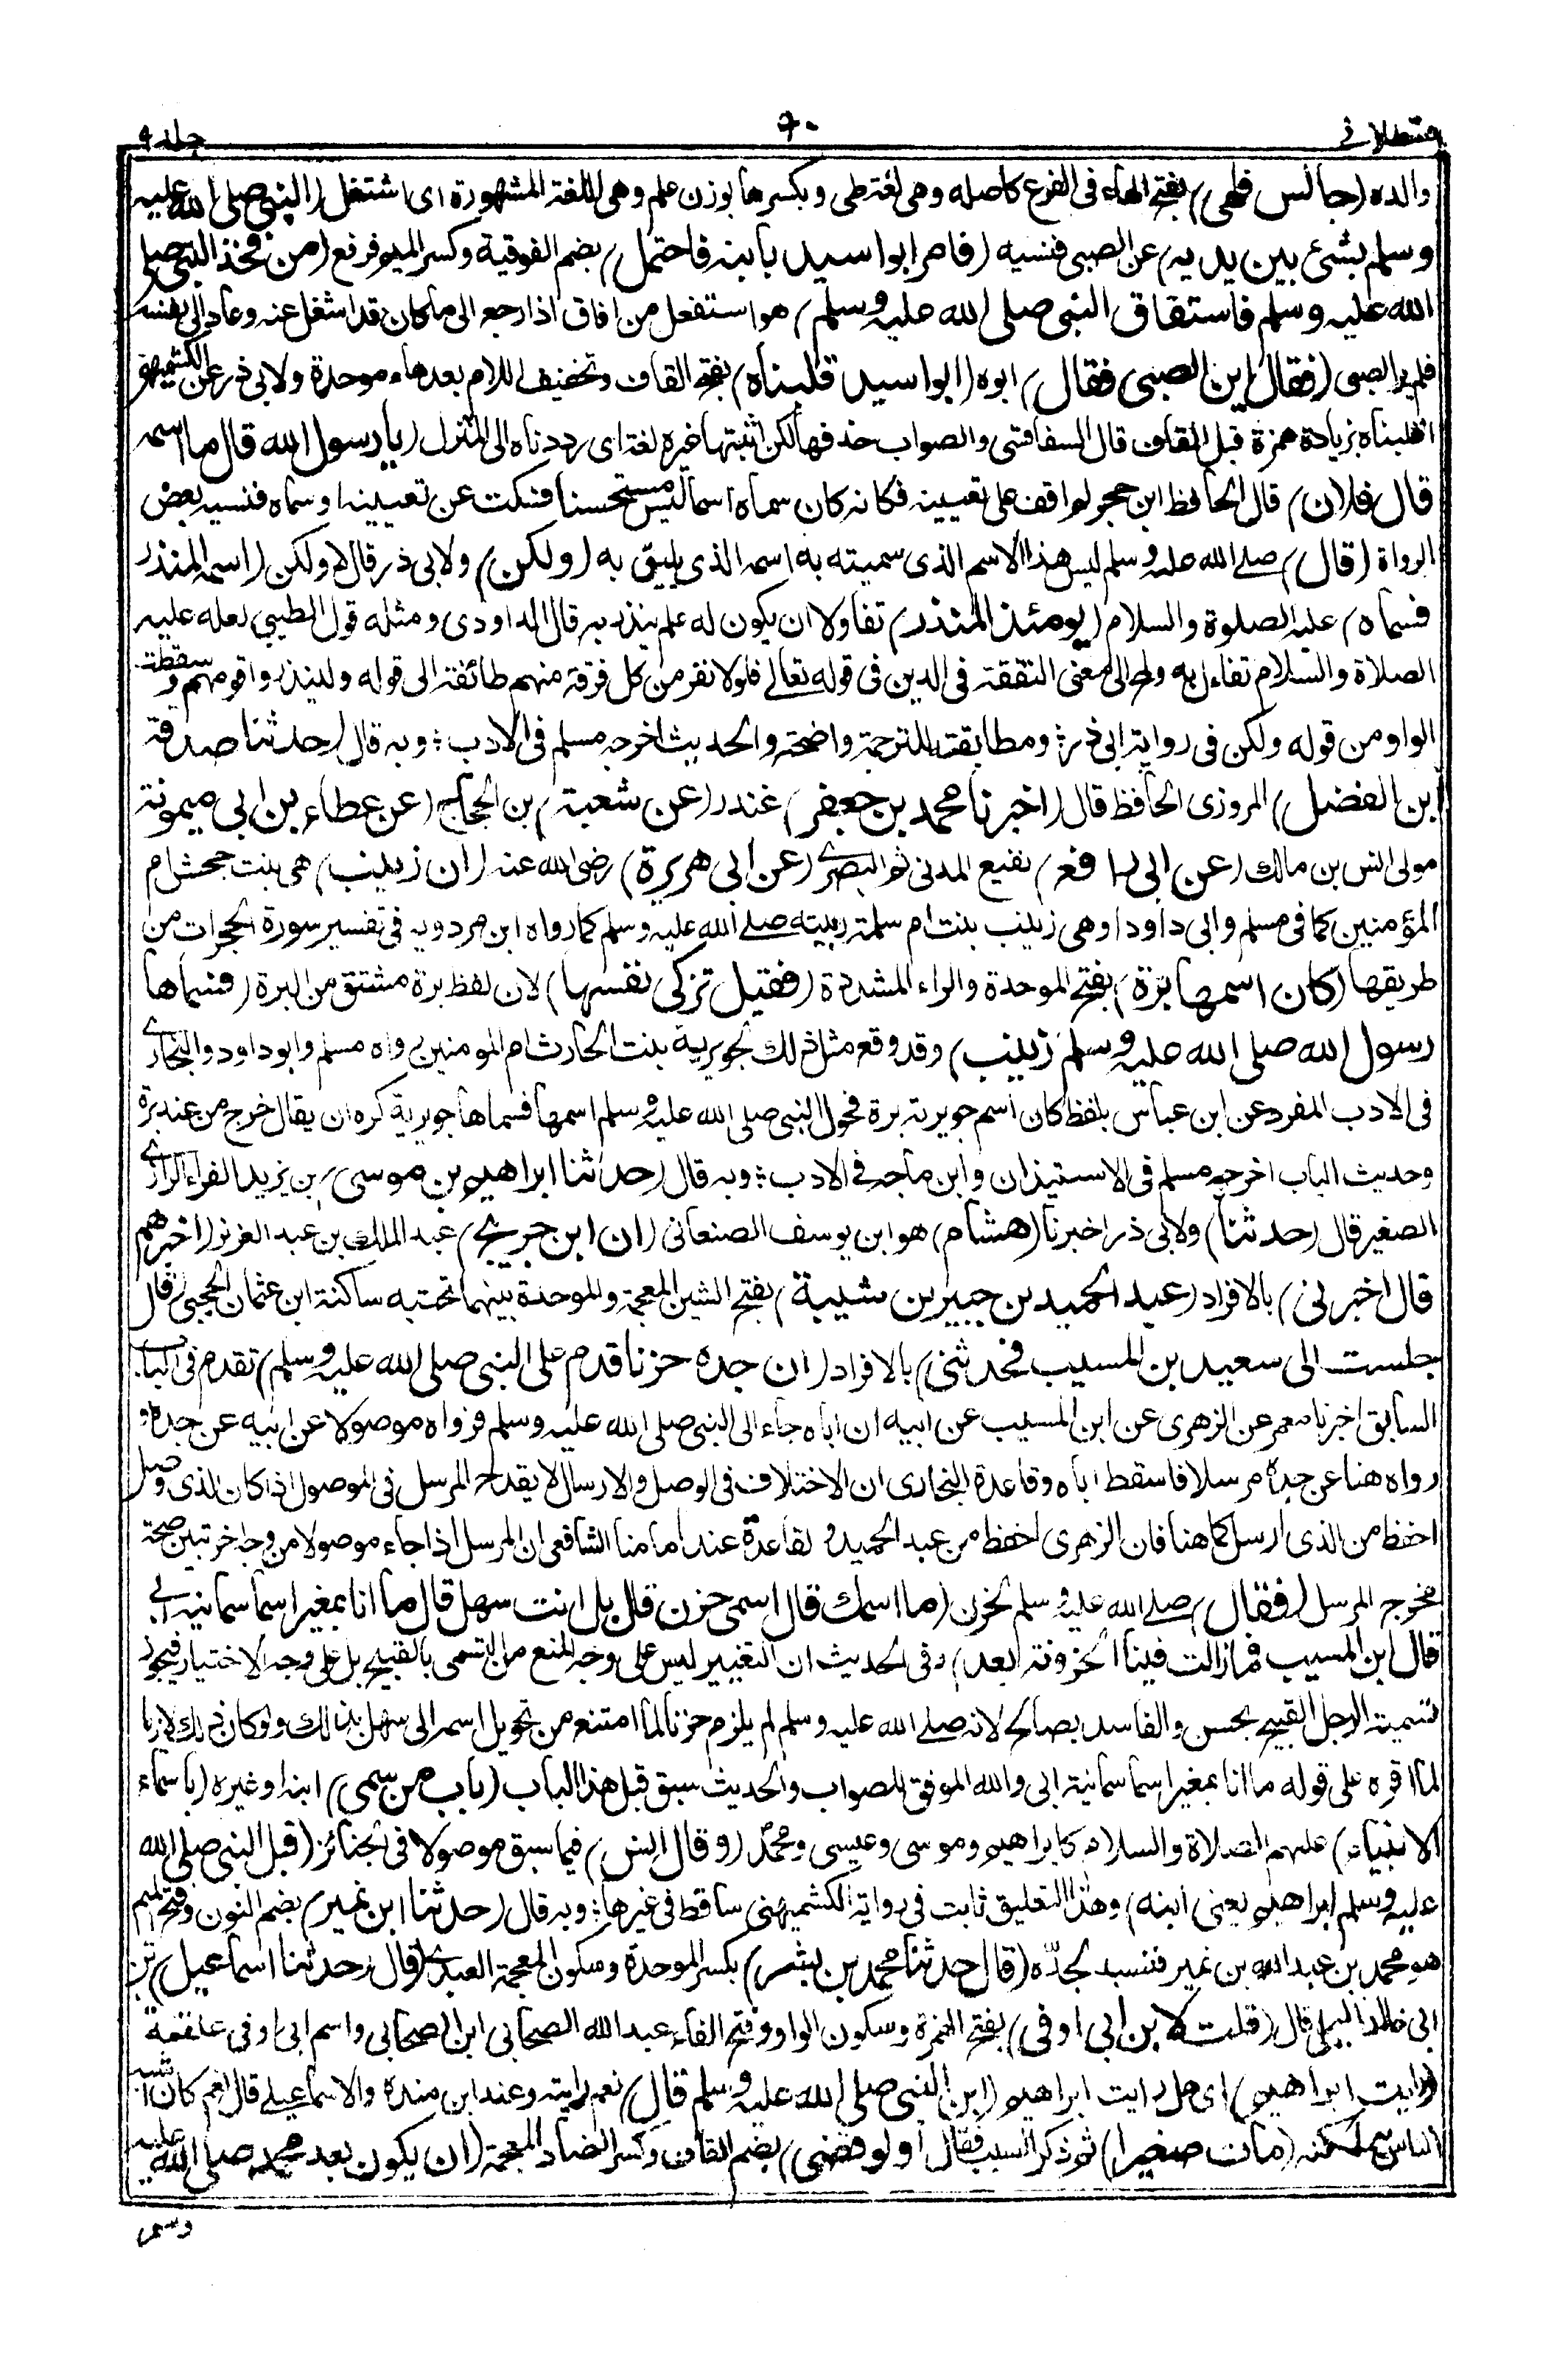 قسطلانی
٦٠
جلد ٩
والده (جالس فلهى) بفتح الهاء فى الفرع كاصله وهى لغة طى وبكسرها بوزن علم وهى اللغة المشهورة اى اشتغل (النبى صلى الله عليه
وسلم بشئ بين يديه) عن الصبى فنسيه (فامر ابو اسيد بابنه فاحتمل) بضم الفوقية وكسر الميم فرفع (من فخذ النبى صلى
الله عليه وسلم فاستفاق النبى صلى الله عليه وسلم) هو استفعل من افاق اذا رجع الى ما كان قد اشغل عنه وعاد الى نفسه
فلم ير الصبى (فقال اين الصبى فقال) ابوه (ابو اسيد قلبناه) بفتح القاف وتخفيف اللام بعدها موحدة ولابى ذر عن الكشميهنى
اقلبناه بزيادة همزة قبل القاف قال السفاقسى والصواب حذفها لكن اثبتها غيره لغة اى رددناه الى المنزل (يا رسول الله قال ما اسمه
قال فلان) قال الحافظ ابن حجر لم اقف على تعيينه فكانه كان سماه اسما ليس مستحسنا فسكت عن تعيينه او سماه فنسيه بعض
الرواة (قال) صلى الله عليه وسلم ليس هذا الاسم الذى سميته به اسمه الذى يليق به (ولكن) ولابى ذر قال لا ولكن (اسمه المنذر
فسماه) عليه الصلوة والسلام (يومئذ المنذر) تفاولا ان يكون له علم ينذر به قال الداودى ومثله قول الطيبي لعله عليه
الصلاة والسلام تفاءل به ولمح الى معنى التفقه فى الدين فى قوله تعالى فلولا نفر من كل فرقة منهم طائفة الى قوله ولينذروا قومهم وسقطت
الواو من قوله ولكن فى رواية ابى ذر ومطابقته للترجمة واضحة والحديث اخرجه مسلم فى الادب وبه قال (حدثنا صدقة
ابن الفضل) المروزى الحافظ قال (اخبرنا محمد بن جعفر) غندر (عن شعبة) بن الحجاج (عن عطاء بن ابى ميمونة
مولى انس بن مالك (عن ابى رافع) نفيع المدنى ثم البصرى (عن ابى هريرة) رضى الله عنه (ان زينب) هى بنت جحش ام
المؤمنين كما فى مسلم وابى داود او هى زينب بنت ام سلمة ربيبته صلى الله عليه وسلم كما رواه ابن مردويه فى تفسير سورة الحجرات من
طريقها (كان اسمها برة) بفتح الموحدة والراء المشددة (فقيل تزكى نفسها) لان لفظ برة مشتق من البرة (فسماها
رسول الله صلى الله عليه وسلم زينب) وقد وقع مثل ذلك لجويرية بنت الحارث ام المومنين رواه مسلم وابو داود والبخارى
فى الادب المفرد عن ابن عباس بلفظ كان اسم جويرية برة فحول النبى صلى الله عليه وسلم اسمها فسماها جويرية كره ان يقال خرج من عند برة
وحديث الباب اخرجه مسلم فى الاستيذان وابن ماجه فى الادب وبه قال (حدثنا ابراهيم بن موسى) بن يزيد الفراء الرازى
الصغير قال (حدثنا) ولابى ذر اخبرنا (هشام) هو ابن يوسف الصنعانى (ان ابن جريج) عبد الملك بن عبد العزيز (اخبرهم
قال اخبرنى) بالافراد (عبد الحميد بن جبير بن شيبة) بفتح الشين المعجمة والموحدة بينهما تحتيه ساكنة ابن عثمان الحجبى (قال
جلست الى سعيد بن المسيب فحدثنى) بالافراد (ان جده حزنا قدم على النبى صلى الله عليه وسلم) تقدم فى الباب
السابق اخبرنا معمر عن الزهرى عن ابن المسيب عن ابيه ان اباه جاء الى النبى صلى الله عليه وسلم فرواه موصولا عن ابيه عن جده و
رواه هنا عن جده مرسلا فاسقط اباه وقاعدة البخارى ان الاختلاف فى الوصل والارسال لا يقدح المرسل فى الموصول اذا كان الذى وصل
احفظ من الذى ارسل كما هنا فان الزهرى احفظ من عبد الحميد و لقاعدة عند امامنا الشافعى ان المرسل اذا جاء موصولا من وجه اخر تبين صحة
مخرج المرسل (فقال) صلى الله عليه وسلم لحزن (ما اسمك قال اسمى حزن قال بل انت سهل قال ما انا بمغير اسما سمانيه ابى
قال ابن المسيب فما زالت فينا الحزونة بعد) وفى الحديث ان التغيير ليس على وجه المنع من التسمى بالقبيح بل على وجه الاختيار فيجوز
تسمية الرجل القبيح بحسن والفاسد بصالح لانه صلى الله عليه وسلم لم يلزم حزنا لما امتنع من تحويل اسمه الى سهل بذلك ولو كان ذلك لازما
لما اقره على قوله ما انا بمغير اسما سمانيه ابى والله الموفق للصواب والحديث سبق قبل هذا الباب (باب من سمى) ابنه او غيره (باسماء
الانبياء) عليهم الصلاة والسلام كابراهيم وموسى وعيسى ومحمد (وقال انس) فيما سبق موصولا فى الجنائز (قبل النبى صلى الله
عليه وسلم ابراهيم يعنى ابنه) وهذا التعليق ثابت فى رواية الكشميهنى ساقط فى غيرها وبه قال (حدثنا ابن نمير) بضم النون وفتح الميم
هو محمد بن عبد الله بن نمير فنسبه لجده (قال حدثنا محمد بن بشر) بكسر الموحدة وسكون المعجمة العبدى (قال حدثنا اسماعيل) بن
ابى خالد البجلى قال (قلت لابن ابى اوفى) بفتح الهمزة وسكون الواو وفتح الفاء عبد الله الصحابى ابن الصحابى واسم ابى اوفى علقمة
(رايت ابراهيم) اى هل رايت ابراهيم (ابن النبى صلى الله عليه وسلم قال) نعم رايته وعند ابن مندة والاسماعيلى قال نعم كان اشبه
الناس به لكنه (مات صغيرا) ثم ذكر السبب فقال (ولو قضى) بضم القاف وكسر الضاد المعجمة (ان يكون بعد محمد صلى الله عليه
وسلم